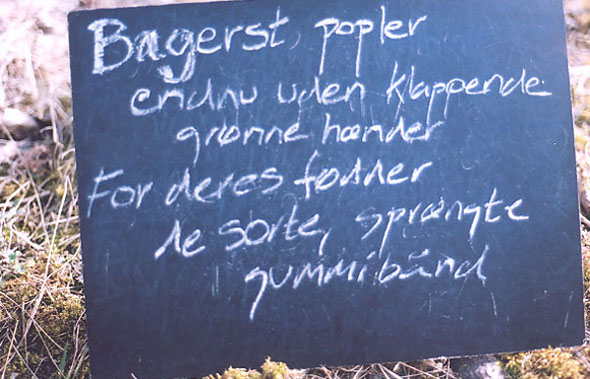 Bagerst, popler
endnu uden klappende
grønne hænder
For deres fødder
de sorte, sprængte
gummibånd